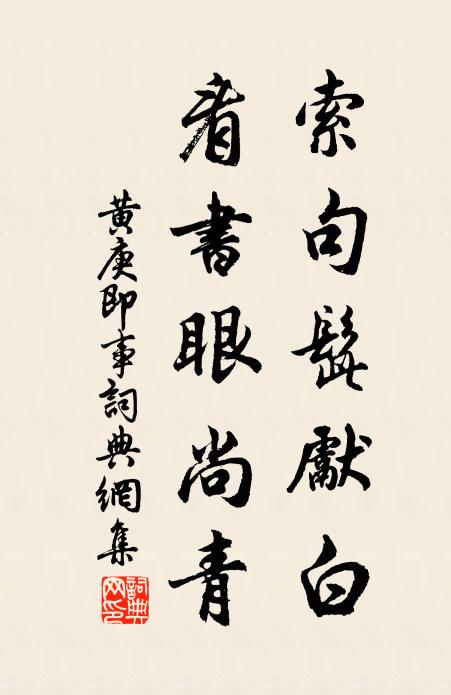 索句髭獻白
看書眼尚青
黄庚即事詞典網集
詞典网印